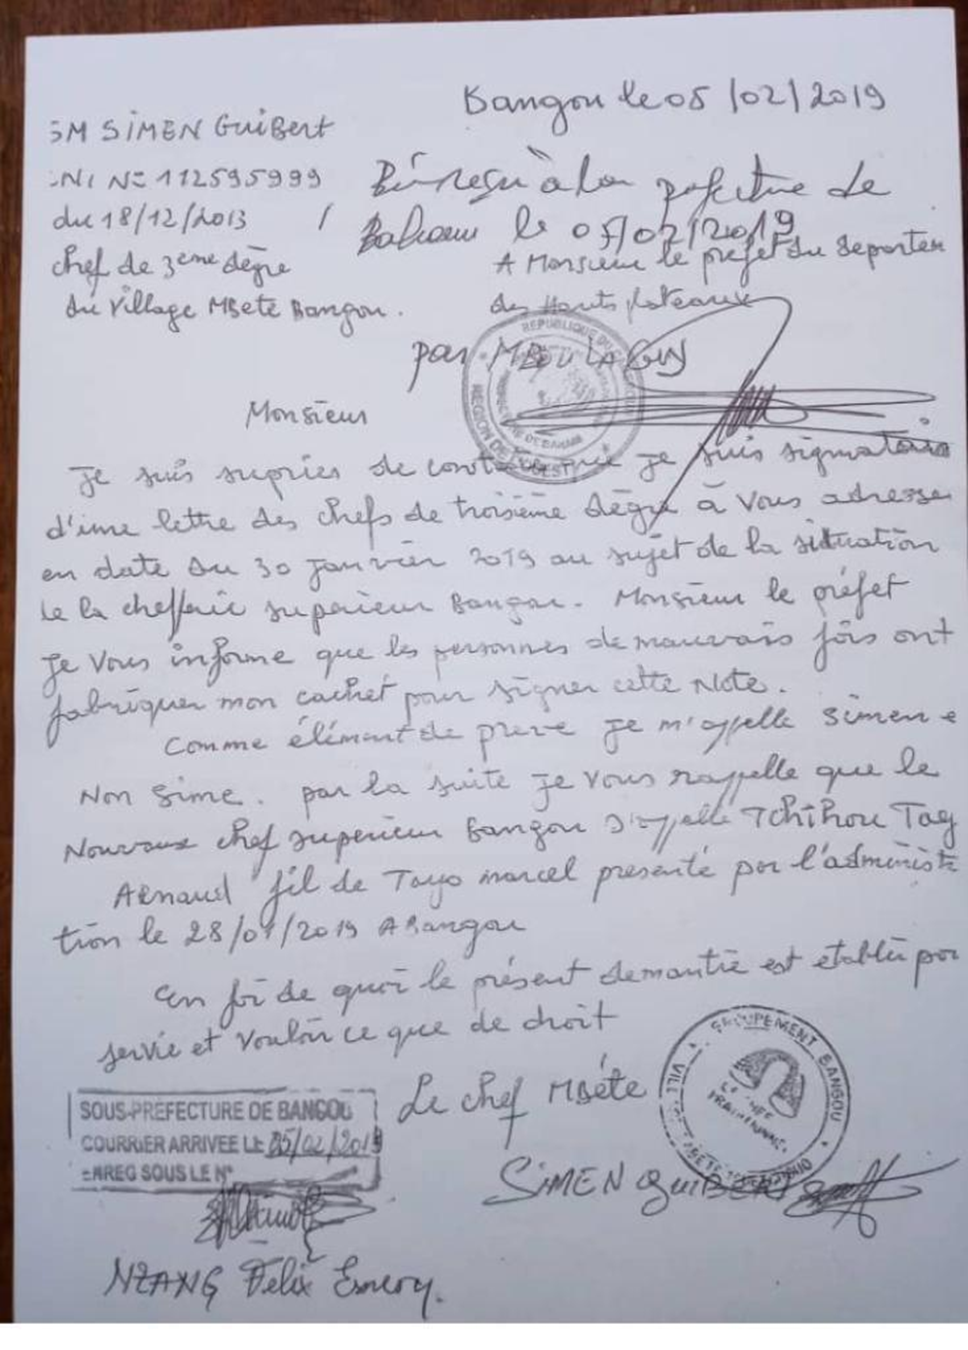 Bangou le 05/02/2019
SM SiMEN GuiBert
NI N° 112595999
du 18/12/2013 /
chef de 3eme dègre
du Village MBetè Bangou.
Bien reçu à la prefecture de
Baham le 05/02/2019
A Monsieur le prefet du departem
des Hauts plateaux
par MBOULA GUY
REPUBLIQUE DU
REGION DE L'OUEST
Monsieur
Je suis supries de je suis signatair
d'une lettre des chefs de troisième dègre à vous adresser
en date du 30 Janvier 2019 au sujet de la situation
de la chefferie superieur Bangou. Monsieur le préfet
Je vous informe que les personnes de mauvais fois ont
fabriquer mon cachet pour signer cette Note.
Comme élément de preve Je m'appelle Simen e
Non Sime. par la suite Je vous rappelle que le
Nouveau chef superieur Bangou s'appelle Tchihou Tag
Arnaud fil de Tayo marcel presenté par l'administ
tion le 28/01/2019 A Bangou
En foi de quoi le présent demantie est etabli pou
servie et vouloir ce que de droit
Le chef MBéte
GROUPEMENT BANGOU
SOUS-PREFECTURE DE BANGOU
COURRIER ARRIVEE LE 05/02/2019
ENREG SOUS LE N°
SiMEN GuiBERT
NZANG Felix Emery.